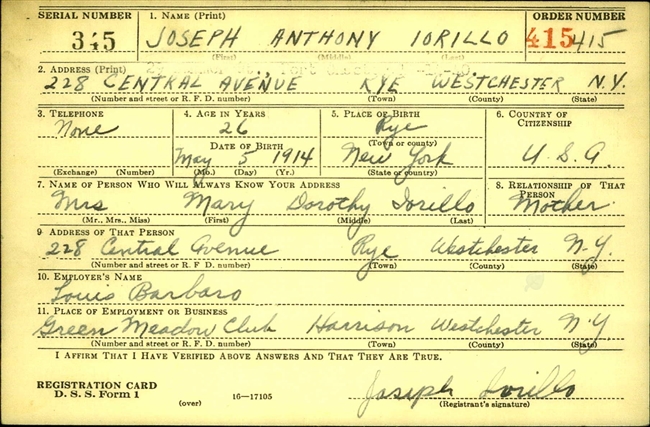 SERIAL NUMBER 1. NAME (Print) ORDER NUMBER
345 JOSEPH ANTHONY IORILLO 415 415
(First) (Middle) (Last)
2. ADDRESS (Print)
228 CENTRAL AVENUE RYE WESTCHESTER N.Y.
(Number and street or R. F. D. number) (Town) (County) (State)
3. TELEPHONE 4. AGE IN YEARS 5. PLACE OF BIRTH 6. COUNTRY OF CITIZENSHIP
None 26 Rye
DATE OF BIRTH (Town or county)
May 5 1914 New York U.S.A.
(Exchange) (Number) (Mo.) (Day) (Yr.) (State or country)
7. NAME OF PERSON WHO WILL ALWAYS KNOW YOUR ADDRESS 8. RELATIONSHIP OF THAT PERSON
Mrs Mary Dorothy Iorillo Mother
(Mr., Mrs., Miss) (First) (Middle) (Last)
9. ADDRESS OF THAT PERSON
228 Central Avenue Rye Westchester N.Y.
(Number and street or R. F. D. number) (Town) (County) (State)
10. EMPLOYER'S NAME
Louis Barbaro
11. PLACE OF EMPLOYMENT OR BUSINESS
Green Meadow Club Harrison Westchester N.Y
(Number and street or R. F. D. number) (Town) (County) (State)
I AFFIRM THAT I HAVE VERIFIED ABOVE ANSWERS AND THAT THEY ARE TRUE.
REGISTRATION CARD
D. S. S. Form 1 (over) 16—17105 Joseph Iorillo
(Registrant's signature)